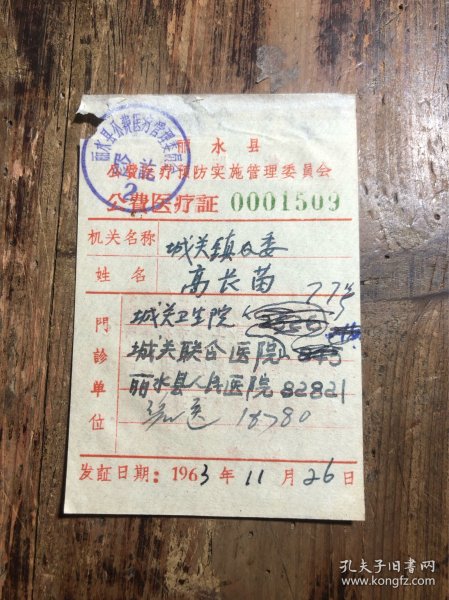 丽水县公费医疗管理委员会
验讫
2
丽水县
公费医疗预防实施管理委员会
公費医疗証 0001509
机关名称 城关镇党委
姓名 高长苗
門診单位
城关卫生院
774
城关联合医院 845
丽水县人民医院 82821
18780
发証日期：1963年11月26日
孔夫子旧书网
www.kongfz.com